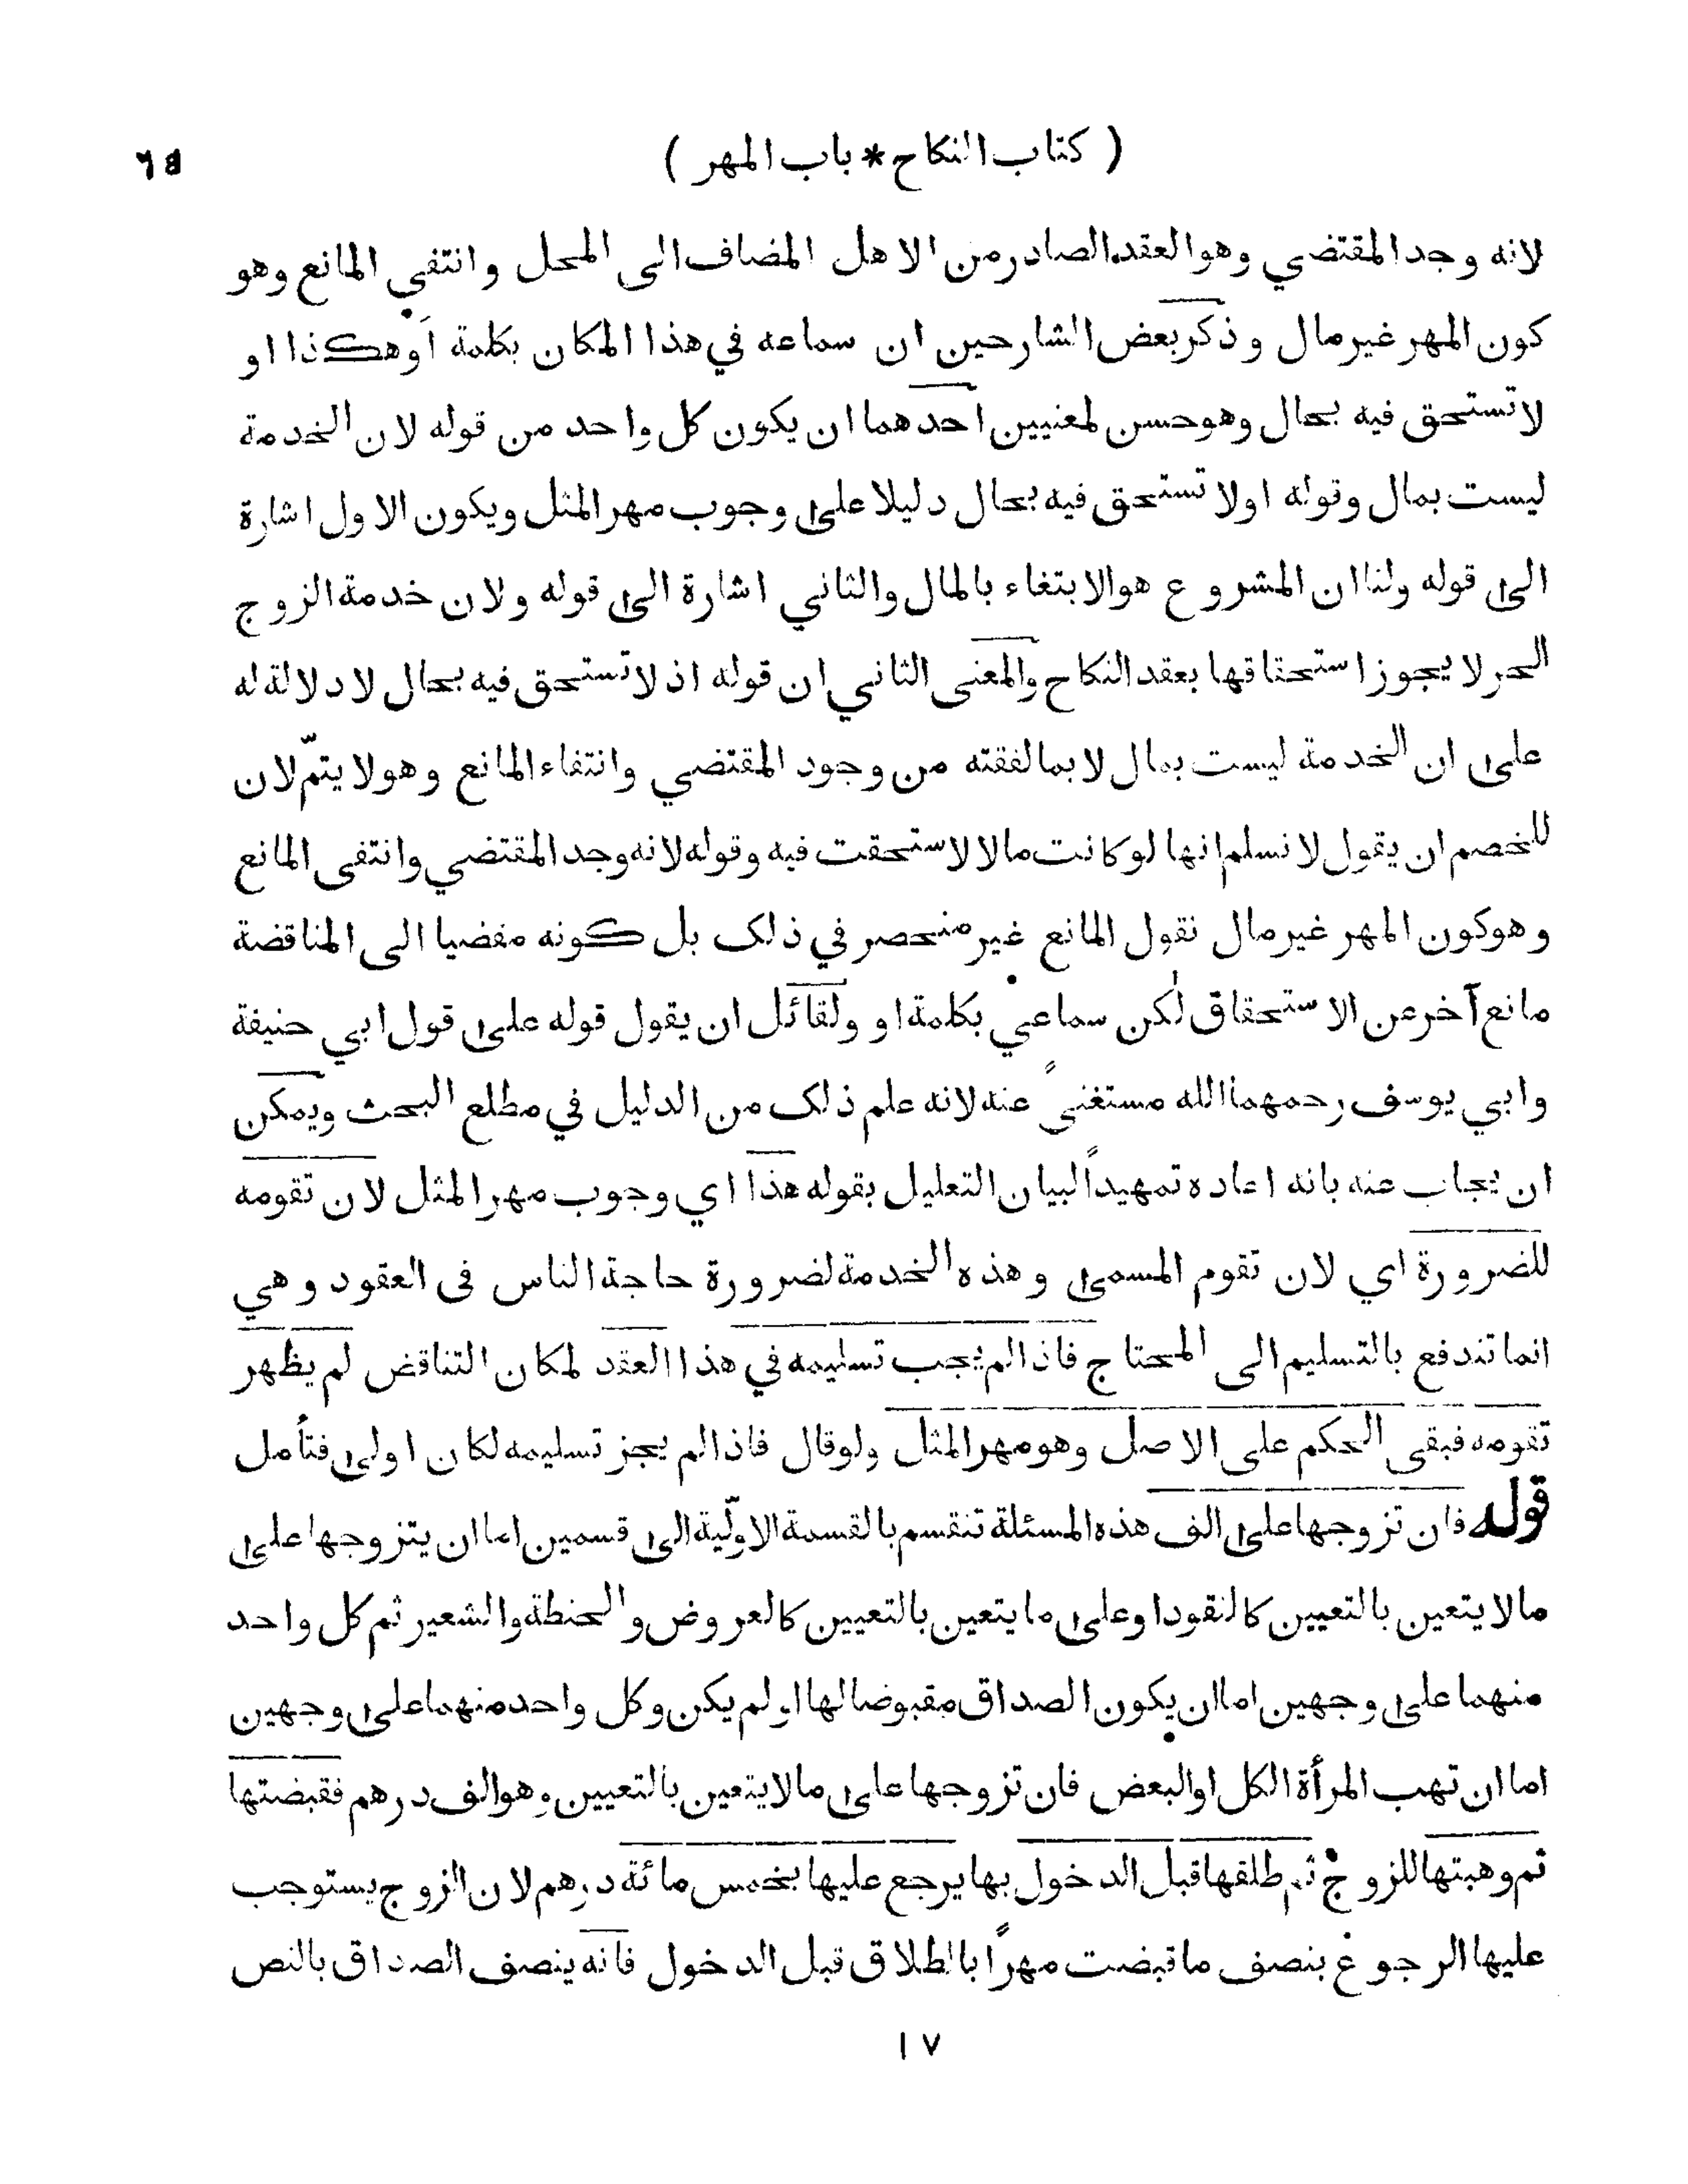 ( كتاب النكاح * باب المهر ) ٦٥
لانه وجد المقتضي وهو العقد الصادر من الاهل المضاف الى المحل وانتفى المانع وهو
كون المهر غير مال وذكر بعض الشارحين ان سماعه في هذا المكان بكلمة أو هكذا او
لا تستحق فيه بحال وهو حسن لمعنيين احدهما ان يكون كل واحد من قوله لان الخدمة
ليست بمال وقوله اولا تستحق فيه بحال دليلا على وجوب مهر المثل ويكون الاول اشارة
الى قوله ولنا ان المشروع هو الابتغاء بالمال والثاني اشارة الى قوله ولان خدمة الزوج
الحر لا يجوز استحقاقها بعقد النكاح والمعنى الثاني ان قوله اذ لا تستحق فيه بحال لا دلالة له
على ان الخدمة ليست بمال لا بما لفقته من وجود المقتضي وانتفاء المانع وهو لا يتمّ لان
للخصم ان يقول لا نسلم انها لو كانت مالا لا ستحقت فيه وقوله لانه وجد المقتضي وانتفى المانع
وهو كون المهر غير مال نقول المانع غير منحصر في ذلك بل كونه مفضيا الى المناقضة
مانع آخر عن الاستحقاق لكن سماعي بكلمة او ولقائل ان يقول قوله على قول ابي حنيفة
وابي يوسف رحمهما الله مستغنىً عنه لانه علم ذلك من الدليل في مطلع البحث ويمكن
ان يجاب عنه بانه اعاده تمهيداً لبيان التعليل بقوله هذا اي وجوب مهر المثل لان تقومه
للضرورة اي لان تقوم المسمى وهذه الخدمة لضرورة حاجة الناس فى العقود وهي
انما تندفع بالتسليم الى المحتاج فاذا لم يجب تسليمه في هذا العقد لمكان التناقض لم يظهر
تقومه فبقى الحكم على الاصل وهو مهر المثل ولو قال فاذا لم يجز تسليمه لكان اولى فتأمل
قوله فان تزوجها على الف هذه المسئلة تنقسم بالقسمة الاوّلية الى قسمين اما ان يتزوجها على
مالا يتعين بالتعيين كالنقود او على ما يتعين بالتعيين كالعروض والحنطة والشعير ثم كل واحد
منهما على وجهين اما ان يكون الصداق مقبوضا لها او لم يكن وكل واحد منهما على وجهين
اما ان تهب المرأة الكل او البعض فان تزوجها على مالا يتعين بالتعيين وهو الف درهم فقبضتها
ثم وهبتها للزوج ثم طلقها قبل الدخول بها يرجع عليها بخمس مائة درهم لان الزوج يستوجب
عليها الرجوع بنصف ما قبضت مهراً بالطلاق قبل الدخول فانه ينصف الصداق بالنص
١٧